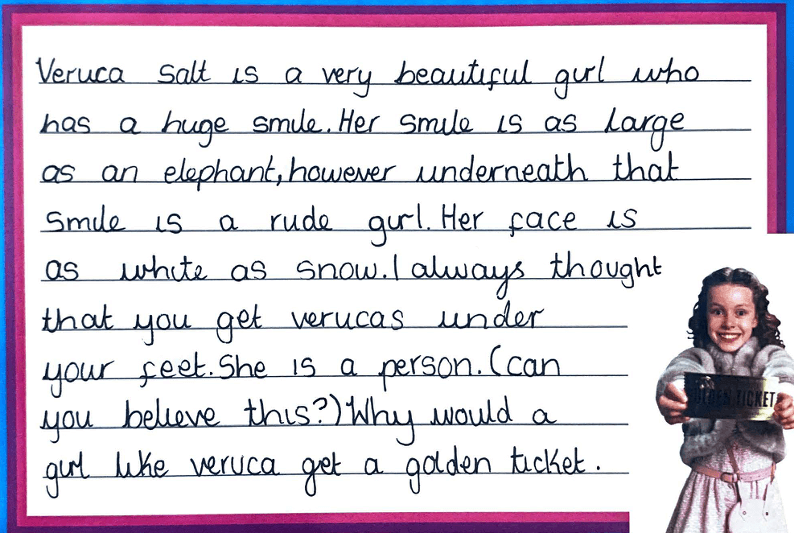 Veruca Salt is a very beautiful girl who
has a huge smile. Her smile is as large
as an elephant, however underneath that
smile is a rude girl. Her face is
as white as snow. I always thought
that you get verucas under
your feet. She is a person. (can
you believe this?) Why would a
girl like veruca get a golden ticket.
GOLDEN TICKET